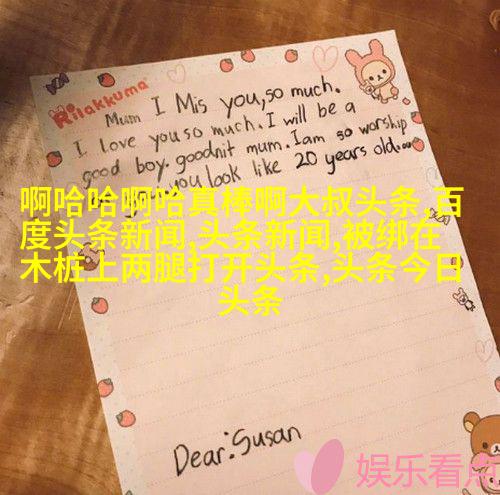 Rilakkuma
Mum I Mis you, so much.
I love you so much. I will be a
good boy. goodnit mum. I am so worship
you look like 20 years old...
啊哈哈啊哈真棒啊大叔头条,百
度头条新闻,头条新闻,被绑在
木桩上两腿打开头条,头条今日
头条
Dear:Susan
娱乐看点